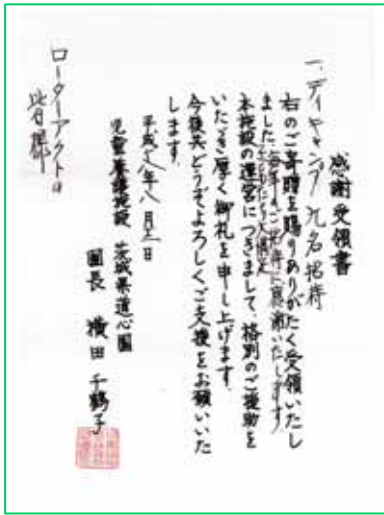 感謝受領書
一、デイキャンプ 九名招待
右のご寄贈を賜りありがたく受領いたし
ました。毎年のご招待に感謝いたします。
本施設の運営につきまして、格別のご援助を
いただき厚く御礼を申し上げます。
今後共、どうぞよろしくご支援をお願いいた
します。
平成十八年八月 日
児童養護施設 茨城県道心園
園長 横田千鶴子
ローターアクトの
皆様